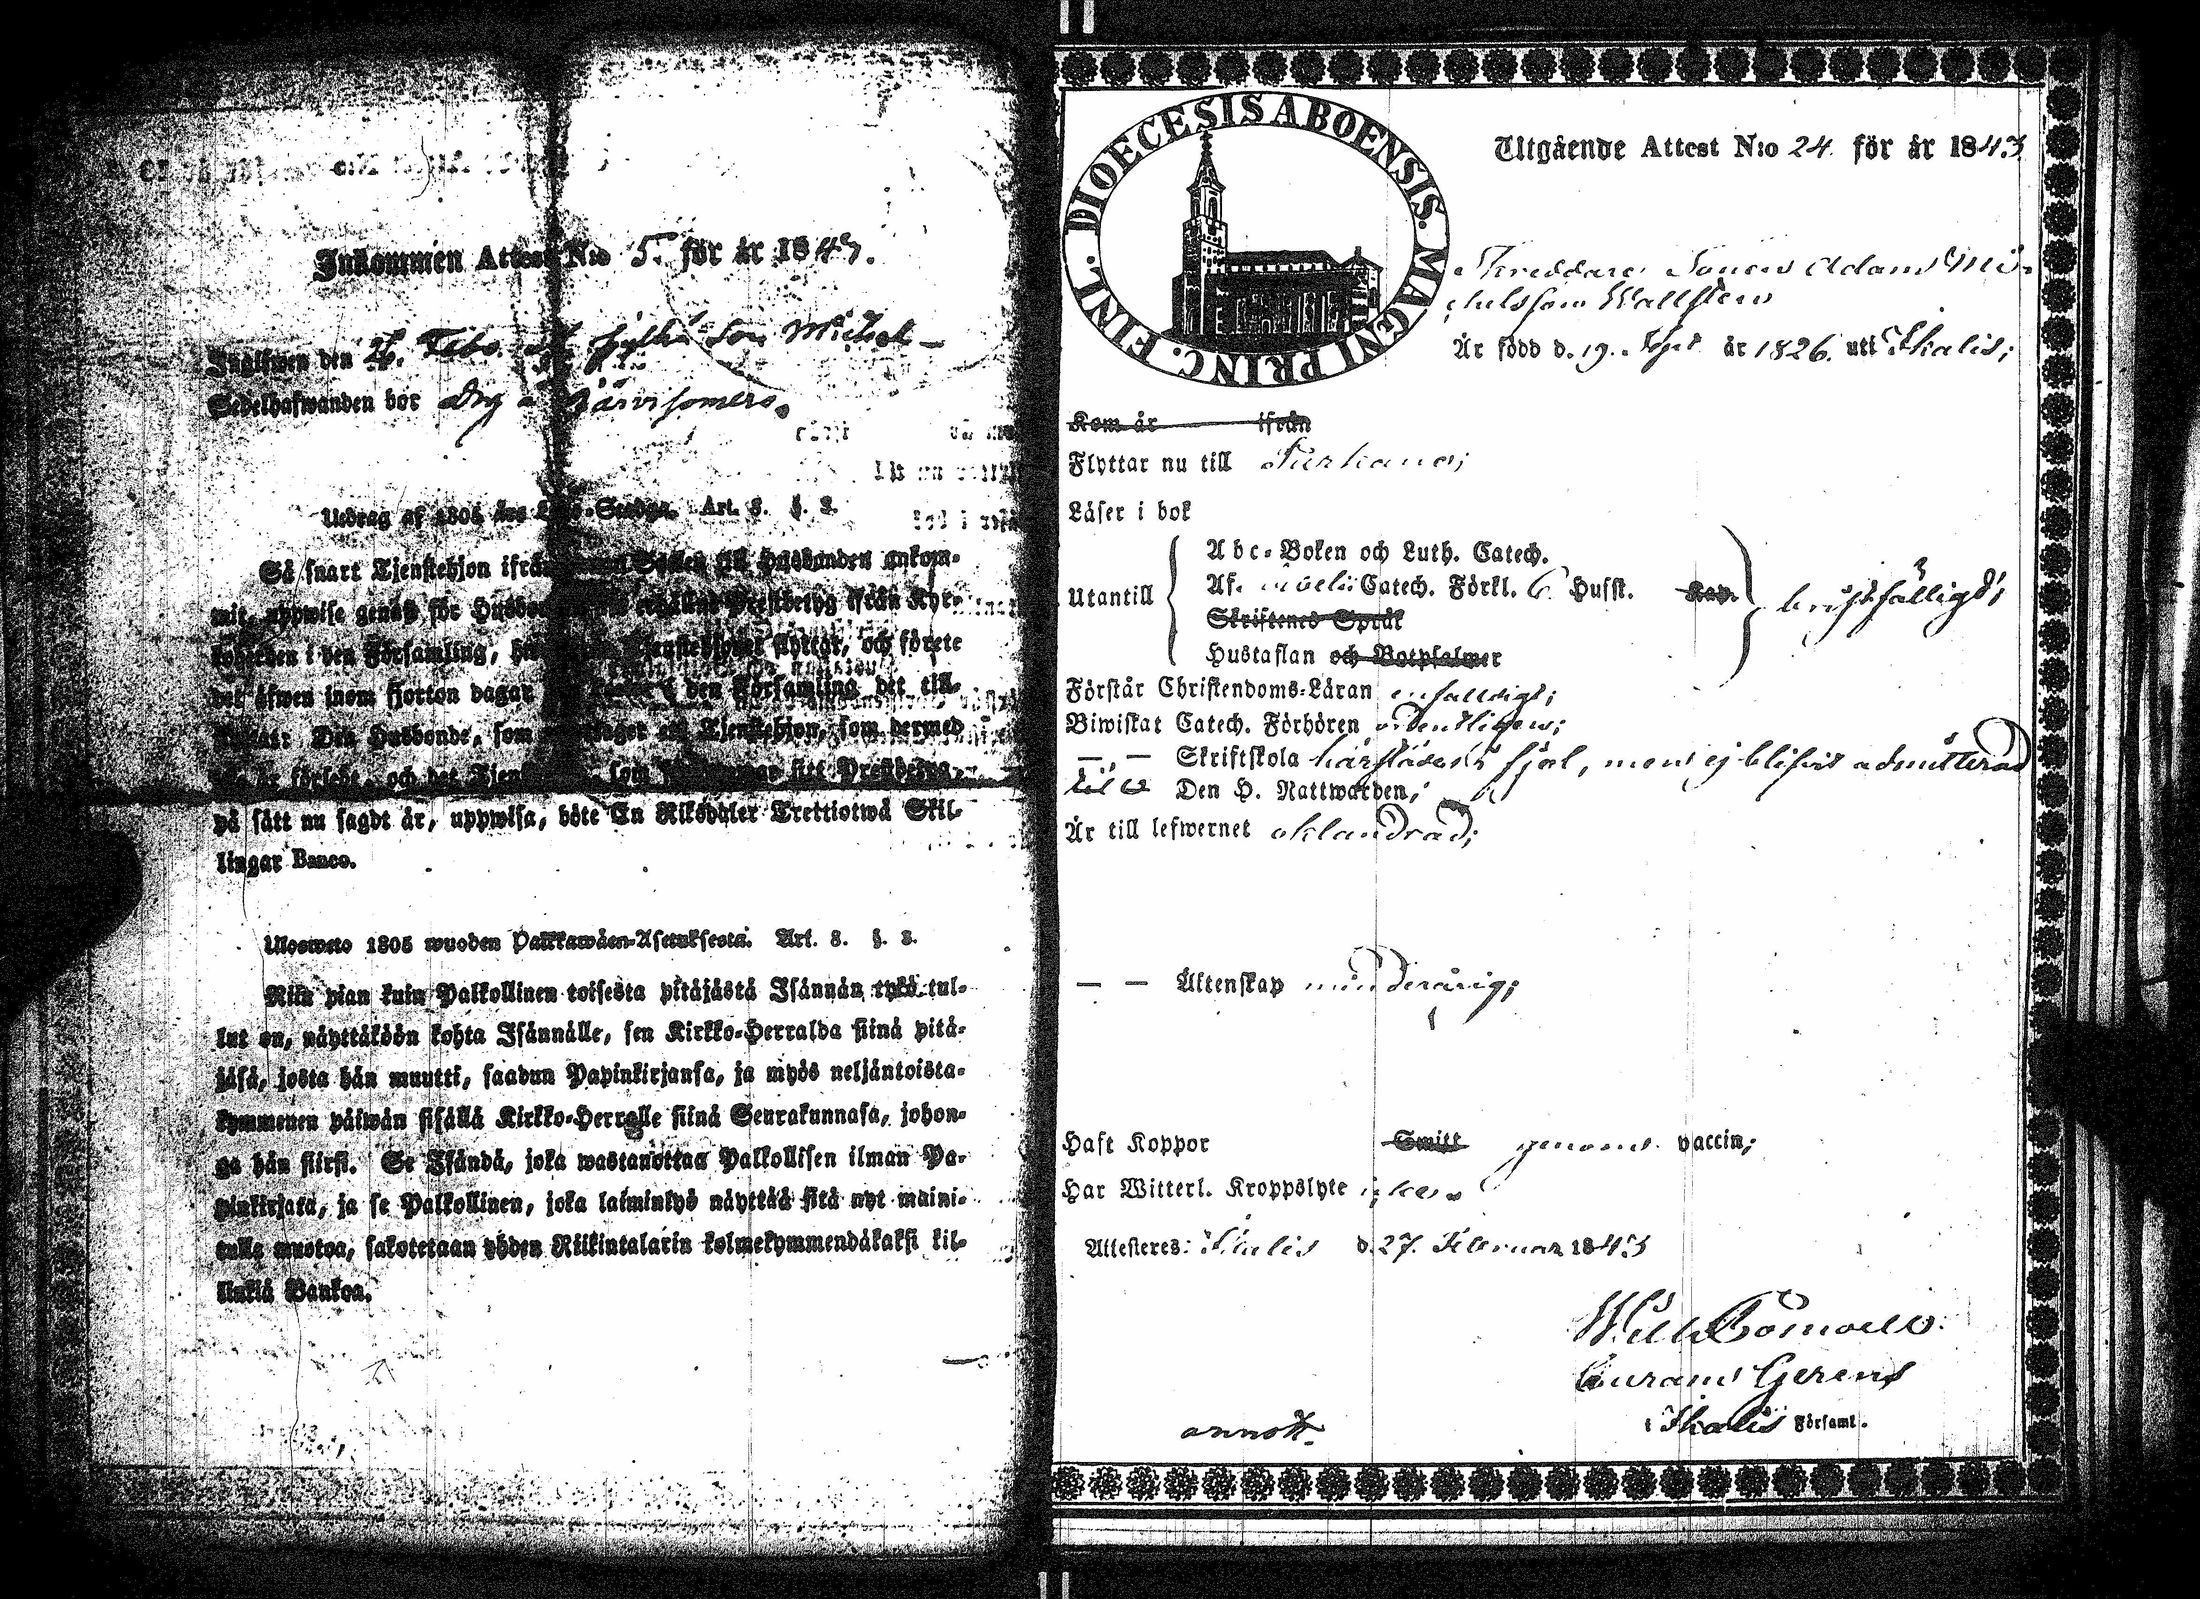 Inkommen Attest N:o 5. för år 1843.
Inglifwen den 28. Febr. Son Michel-
Sedelhafwanden bor Dng Järvisomero.
Utdrag af 1805 års Lego-Stadga. Art. 8. §. 3.
Så snart Tjenstehjon ifrån Socken till Husbonden ankom-
mit, uppwise genast för Husbonden erhållne Prestbetyg ifrån Kyr-
koherden i den Församling, Tjenstehjonet flyttar, och förete
det äfwen inom fjorton dagar den Församling det till-
Den Husbonde, som emottager ett Tjenstehjon, som dermed
ej är försedt, och det Tjenstehjon, som sitt Prestbetyg,
på sätt nu sagdt är, uppwisa, böte En Riksdaler Trettiotwå Skil-
lingar Banco.
Ulosweto 1805 wuoden Palkkawäen-Asetuksesta. Art. 8. §. 3.
Niin pian kuin Palkollinen toisesta pitäjästä Isännän tykö tul-
lut on, näyttäköön kohta Isännälle, sen Kirkko-Herralda siinä pitä-
jäsä, josta hän muutti, saadun Papinkirjansa, ja myös neljäntoista-
kymmenen päiwän sisällä Kirkko-Herralle siinä Seurakunnasa, johon-
ga hän siirsi. Se Isändä, joka wastanottaa Palkollisen ilman Pa-
pinkirjata, ja se Palkollinen, joka laiminlyö näyttää sitä nyt maini-
tulla muotoa, sakotetaan yhden Riikintalarin kolmekymmendäkaksi kil-
linkiä Bankoa.
DIOECESIS ABOENSIS. MAGNI PRINC. FINL.
Utgående Attest N:o 24. för år 1843
Skreddare Sonen Adam Mi-
chelsson Wallsten
Är född d. 19. Sept. år 1826. uti Ikalis;
Kom år ifrån
Flyttar nu till Birkana;
Läser i bok
Utantill
Abc-Boken och Luth. Catech.
Af. Catech. Förkl. 6 Husst. Kap.
Skriftenes Språk
Hustaflan och Botpsalmer
bristfälligt;
Förstår Christendoms-Läran enfaldigt;
Biwistat Catech. Förhören ordentligen;
— — Skriftskola härstädes i fjol, men ej blifvit admitterad
till Den H. Nattwarden;
Är till lefwernet oklandrad;
— — Äktenskap minderårig;
Haft Koppor Smitt genom vaccin;
Har Witterl. Kroppslyte icke.
Attesteras: Ikalis d. 27. Februar. 1843
Curam Gerens
i Ikalis Församl.
annott.